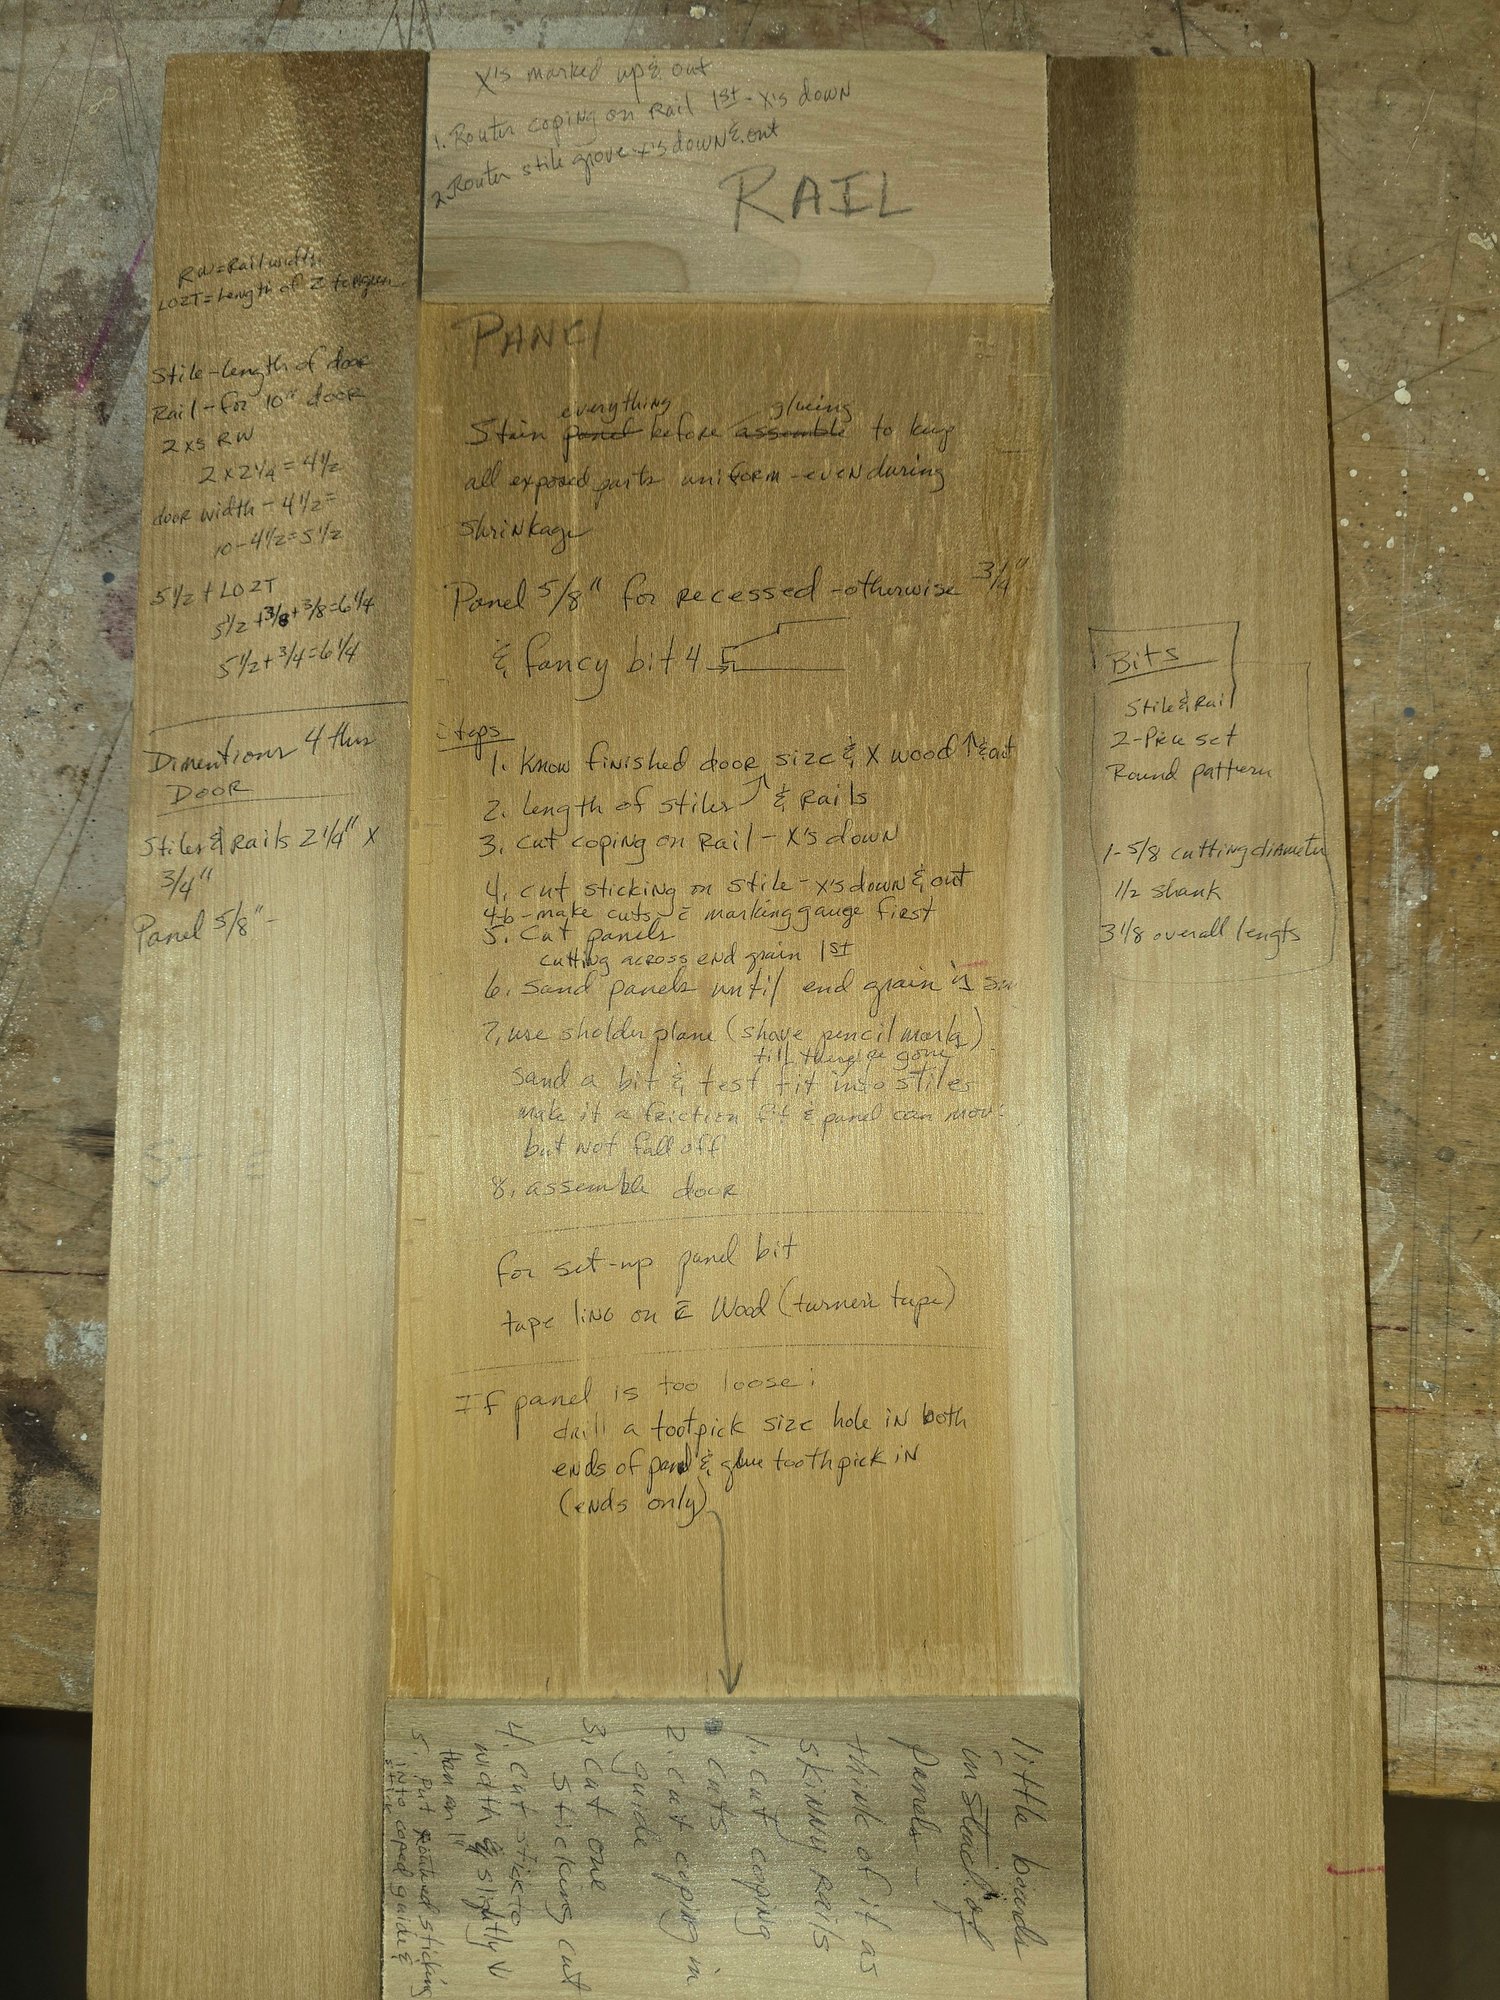 X's marked up & out
1. Router coping on Rail 1st - X's down
2. Router stile grove - X's down & out
RAIL
RW = Rail width
LO2T = Length of 2 tongues
Stile - length of door
Rail - for 10" door
2 x's RW
2 x 2 1/4 = 4 1/2
door width - 4 1/2 =
10 - 4 1/2 = 5 1/2
5 1/2 + LO2T
5 1/2 + 3/8 + 3/8 = 6 1/4
5 1/2 + 3/4 = 6 1/4
Dimentions 4 this
DOOR
Stiles & Rails 2 1/4" X
3/4"
Panel 5/8" -
PANEl
everything glueing
Stain panel before assemble to keep
all exposed parts uniform - even during
shrinkage
Panel 5/8" for recessed - otherwise 3/4"
& fancy bit 4
Steps
1. Know finished door size & X wood ↑ & out
2. length of stiles & Rails
3. cut coping on Rail - X's down
4. cut sticking on stile - X's down & out
4b - make cuts c̄ marking gauge first
5. Cut panels
cutting across end grain 1st
6. Sand panels until end grain is
7. use sholder plane (shave pencil marks)
till they're gone
sand a bit & test fit into stiles
make it a friction fit & panel can move
but not fall off
8. assemble door
for set-up panel bit
tape lino on c̄ Wood (turner's tape)
If panel is too loose:
drill a tootpick size hole in both
ends of panel & glue toothpick in
(ends only)
Bits
Stile & Rail
2-Piece set
Round pattern
1-5/8 cutting diameter
1/2 shank
3 1/8 overall lengts
little boards
instead of
panels -
think of it as
skinny rails
1. cut coping
cuts
2. cut coping in
guide
3. cut one
sticking cut
4. cut stick to
width & slightly ↓
than an 1"
5. put routed sticking
into coped guide &